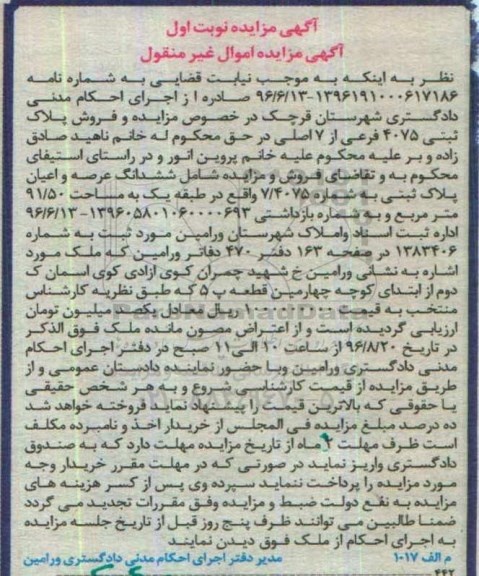 آگهی مزایده نوبت اول
آگهی مزایده اموال غیر منقول
نظر به اینکه به موجب نیابت قضایی به شماره نامه
۱۳۹۶۱۹۱۰۰۰۶۱۷۱۸۶-۹۶/۶/۱۳ صادره ا ز اجرای احکام مدنی
دادگستری شهرستان قرچک در خصوص مزایده و فروش پلاک
ثبتی ۴۰۷۵ فرعی از ۷ اصلی در حق محکوم له خانم ناهید صادق
زاده و بر علیه محکوم علیه خانم پروین انور و در راستای استیفای
محکوم به و تقاضای فروش و مزایده شامل ششدانگ عرصه و اعیان
پلاک ثبتی به شماره ۷/۴۰۷۵ واقع در طبقه یک به مساحت ۹۱/۵۰
متر مربع و به شماره بازداشتی ۱۳۹۶۰۵۸۰۱۰۶۰۰۰۰۶۹۳-۹۶/۶/۱۳
اداره ثبت اسناد واملاک شهرستان ورامین مورد ثبت به شماره
۱۳۸۳۴۰۶ در صفحه ۱۶۳ دفتر ۴۷۰ دفاتر ورامین که ملک مورد
اشاره به نشانی ورامین خ شهید چمران کوی ازادی کوی اسمان ک
دوم از ابتدای کوچه چهارمین قطعه پ ۵ که طبق نظریه کارشناس
منتخب به قیمت ریال معادل یکصد میلیون تومان
ارزیابی گردیده است و از اعتراض مصون مانده ملک فوق الذکر
در تاریخ ۹۶/۸/۲۰ از ساعت ۱۰ الی ۱۱ صبح در دفتر اجرای احکام
مدنی دادگستری ورامین وبا حضور نماینده دادستان عمومی و از
طریق مزایده از قیمت کارشناسی شروع و به هر شخص حقیقی
یا حقوقی که بالاترین قیمت را پیشنهاد نماید فروخته خواهد شد
ده درصد مبلغ مزایده فی المجلس از خریدار اخذ و نامبرده مکلف
است ظرف مهلت ماه از تاریخ مزایده مهلت دارد که به صندوق
دادگستری واریز نماید در صورتی که در مهلت مقرر خریدار وجه
مورد مزایده را پرداخت ننماید سپرده وی پس از کسر هزینه های
مزایده به نفع دولت ضبط و مزایده وفق مقررات تجدید می گردد
ضمنا طالبین می توانند ظرف پنج روز قبل از تاریخ جلسه مزایده
به اجرای احکام از ملک فوق دیدن نمایند
م الف ۱۰۱۷ مدیر دفتر اجرای احکام مدنی دادگستری ورامین
۴۴۲